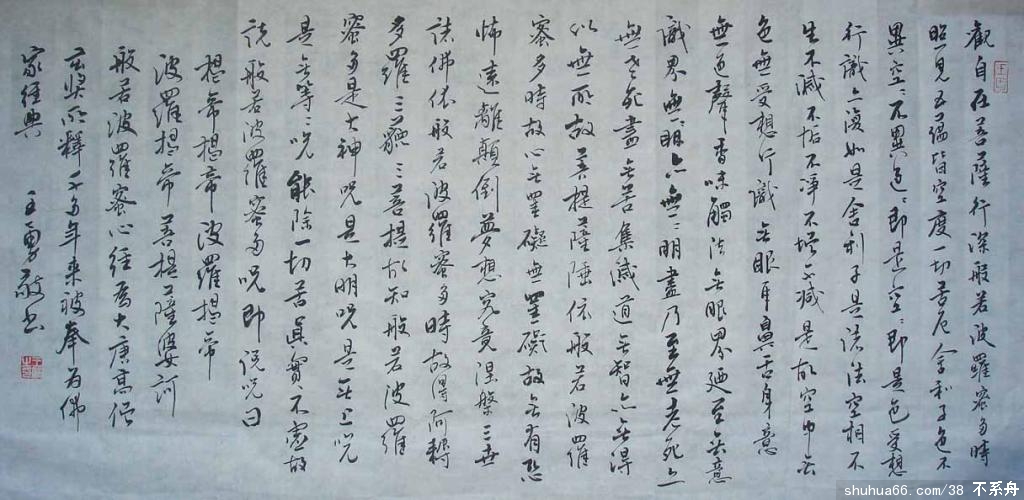 觀自在菩薩行深般若波羅蜜多時
照見五蘊皆空度一切苦厄舍利子色不
異空〻不異色〻即是空〻即是色受想
行識亦復如是舍利子是諸法空相不
生不滅不垢不淨不增不減是故空中無
色無受想行識無眼耳鼻舌身意
無色聲香味觸法無眼界廼至無意
識界無〻明亦無〻明盡乃至無老死亦
無老死盡無苦集滅道無智亦無得
以無所故菩提薩埵依般若波羅
蜜多時故心無罣礙無罣礙故無有恐
怖遠離顛倒夢想究竟涅槃三世
諸佛依般若波羅蜜多時故得阿耨
多羅三藐三菩提故知般若波羅
蜜多是大神咒是大明咒是無上咒
是無等〻咒能除一切苦真實不虛故
說般若波羅蜜多咒即說咒曰
揭帝揭帝波羅揭帝
波羅揭帝菩提薩婆訶
般若波羅蜜心經為大唐高僧
玄奘所釋千多年來被奉為佛
家經典 王勇敬書
shuhua66.com/38 不系舟